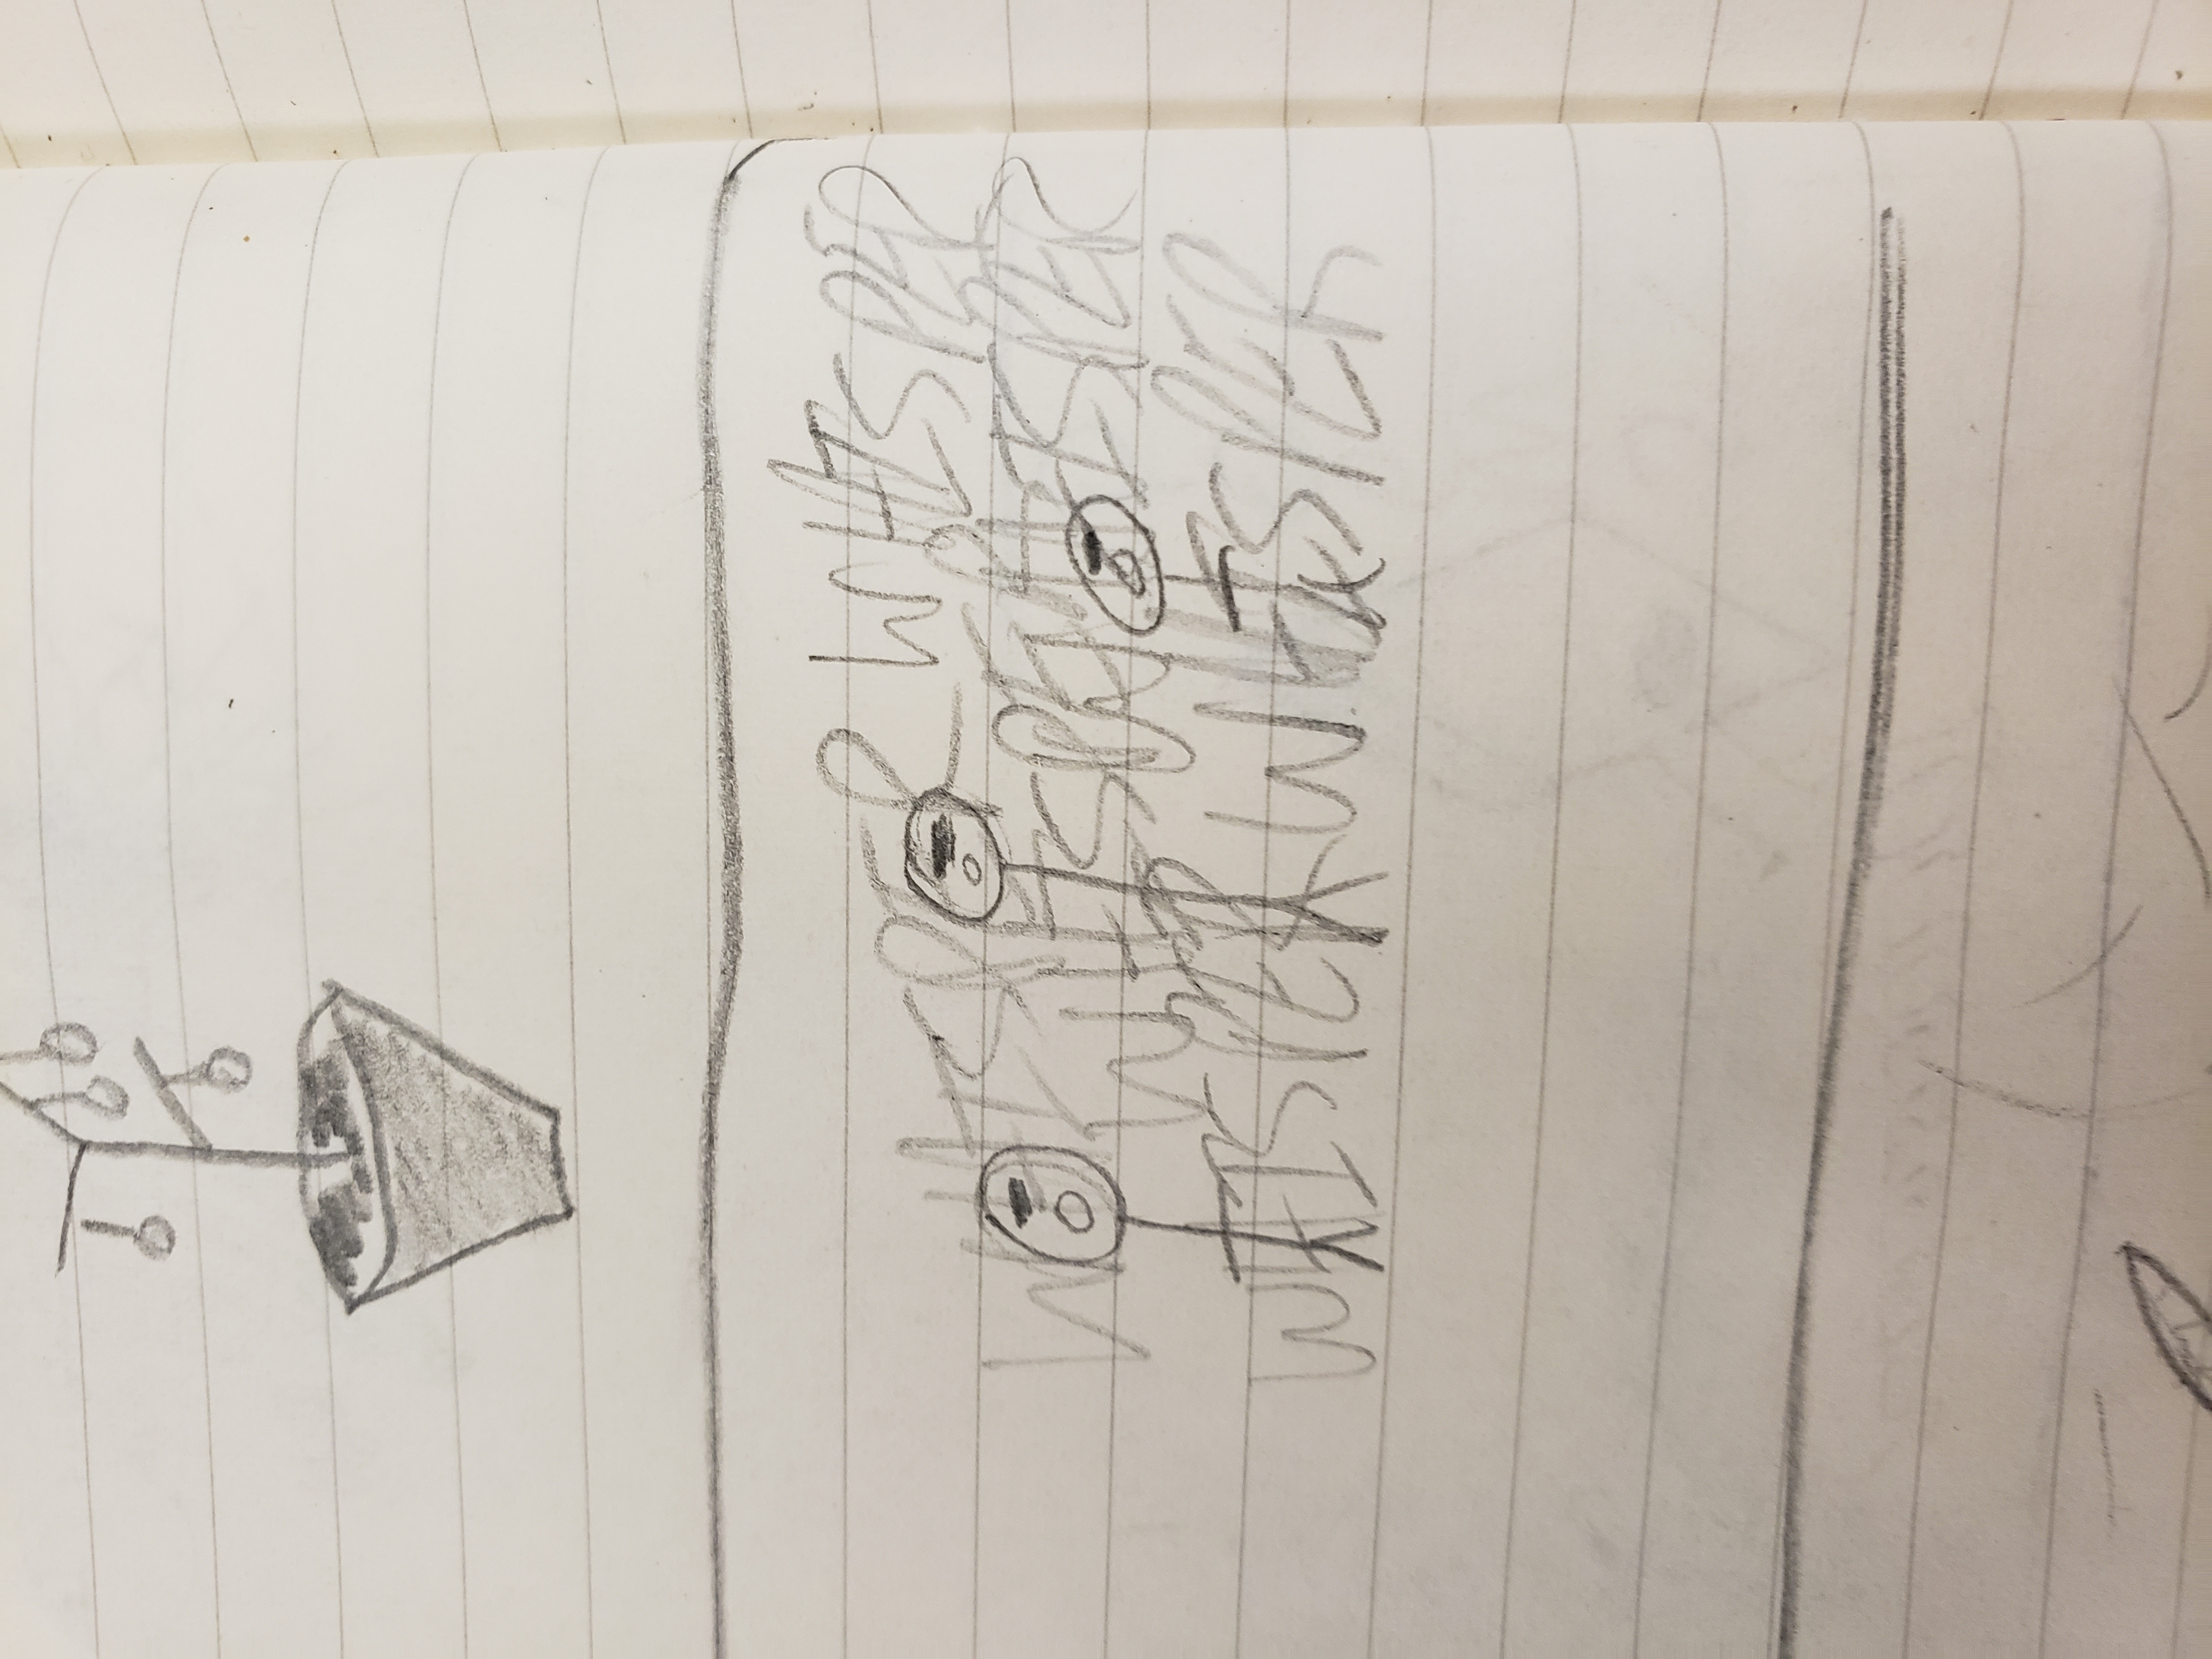 WHISPER WHISPER
WHISPER WHISPER
WHISPER WHISPER